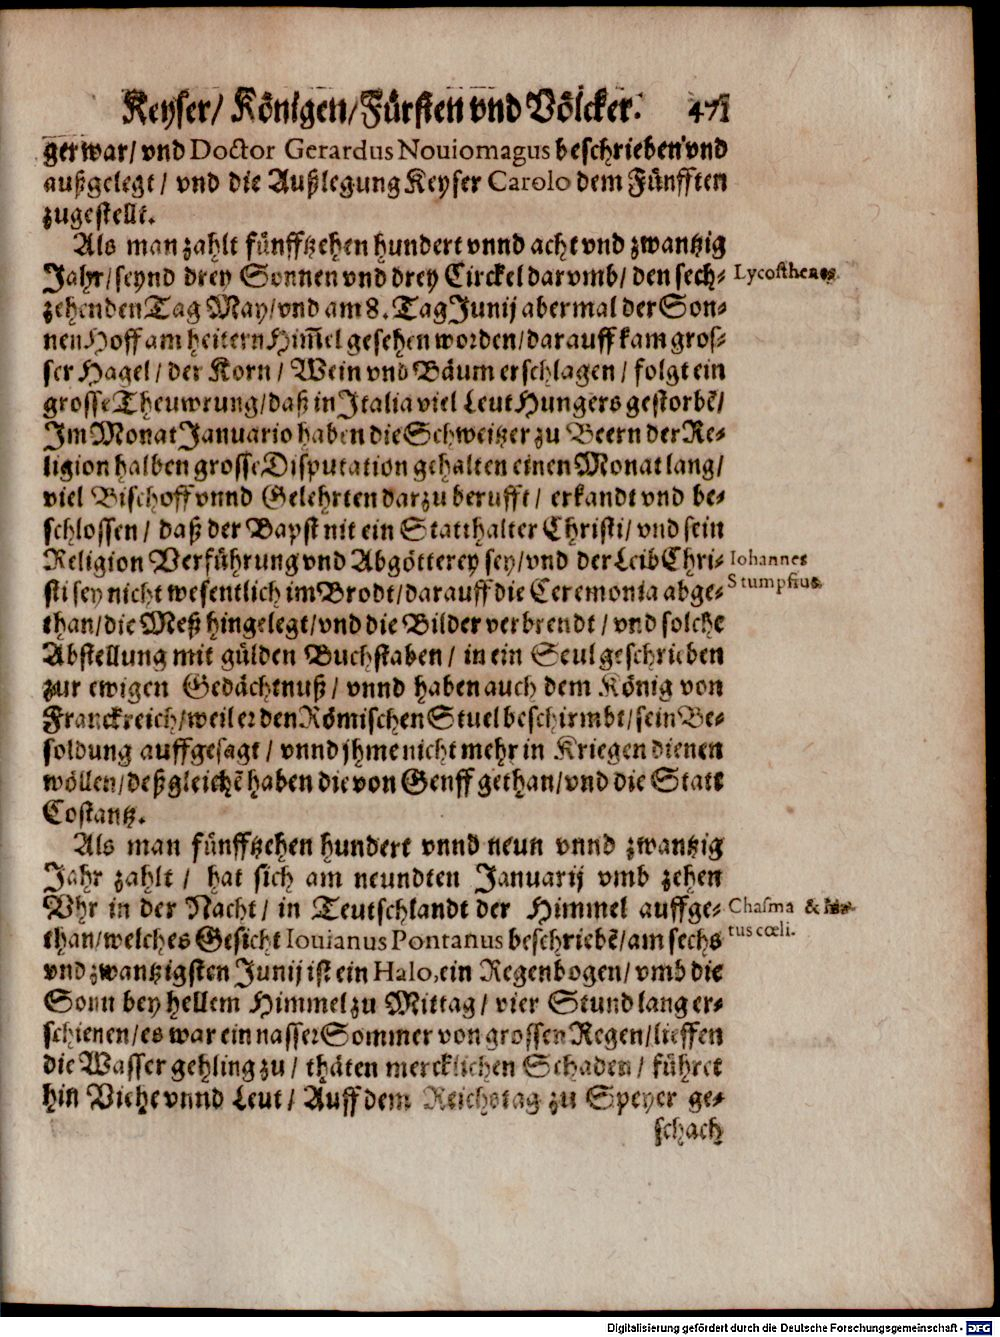 Keyser/ Königen/ Fürsten vnd Völcker. 471
ger war/ vnd Doctor Gerardus Nouiomagus beschrieben vnd
außgelegt/ vnd die Außlegung Keyser Carolo dem Fünfften
zugestellt.
Als man zahlt fünfftzehen hundert vnnd acht vnd zwantzig
Jahr/ seynd drey Sonnen vnd drey Circkel darvmb/ den sech- Lycosthenes.
zehenden Tag May/ vnd am 8. Tag Junij abermal der Son-
nen Hoff am heitern Him̃el gesehen worden/ darauff kam gros-
ser Hagel/ der Korn/ Wein vnd Bäum erschlagen/ folgt ein
grosse Theuwrung/ daß in Italia viel Leut Hungers gestorbẽ/
Im Monat Januario haben die Schweitzer zu Beern der Re-
ligion halben grosse Disputation gehalten einen Monat lang/
viel Bischoff vnnd Gelehrten darzu berufft/ erkandt vnd be-
schlossen/ daß der Bapst nit ein Statthalter Christi/ vnd sein
Religion Verführung vnd Abgötterey sey/ vnd der Leib Chri- Iohannes
sti sey nicht wesentlich im Brodt/ darauff die Ceremonia abge- Stumpfius.
than/ die Meß hingelegt/ vnd die Bilder verbrendt/ vnd solche
Abstellung mit gülden Buchstaben/ in ein Seul geschrieben
zur ewigen Gedächtnuß/ vnnd haben auch dem König von
Franckreich/ weil er den Römischen Stuel beschirmbt/ sein Be-
soldung auffgesagt/ vnnd jhme nicht mehr in Kriegen dienen
wöllen/ deßgleichẽ haben die von Genff gethan/ vnd die Statt
Costantz.
Als man fünfftzehen hundert vnnd neun vnnd zwantzig
Jahr zahlt/ hat sich am neundten Januarij vmb zehen
Vhr in der Nacht/ in Teutschlandt der Himmel auffge- Chasma & hia-
than/ welches Gesicht Iouianus Pontanus beschriebẽ/ am sechs tus cœli.
vnd zwantzigsten Junij ist ein Halo, ein Regenbogen/ vmb die
Sonn bey hellem Himmel zu Mittag/ vier Stund lang er-
schienen/ es war ein nasser Sommer von grossen Regen/ lieffen
die Wasser gehling zu/ thäten mercklichen Schaden/ führet
hin Viehe vnnd Leut/ Auff dem Reichstag zu Speyer ge-
schach
Digitalisierung gefördert durch die Deutsche Forschungsgemeinschaft - DFG